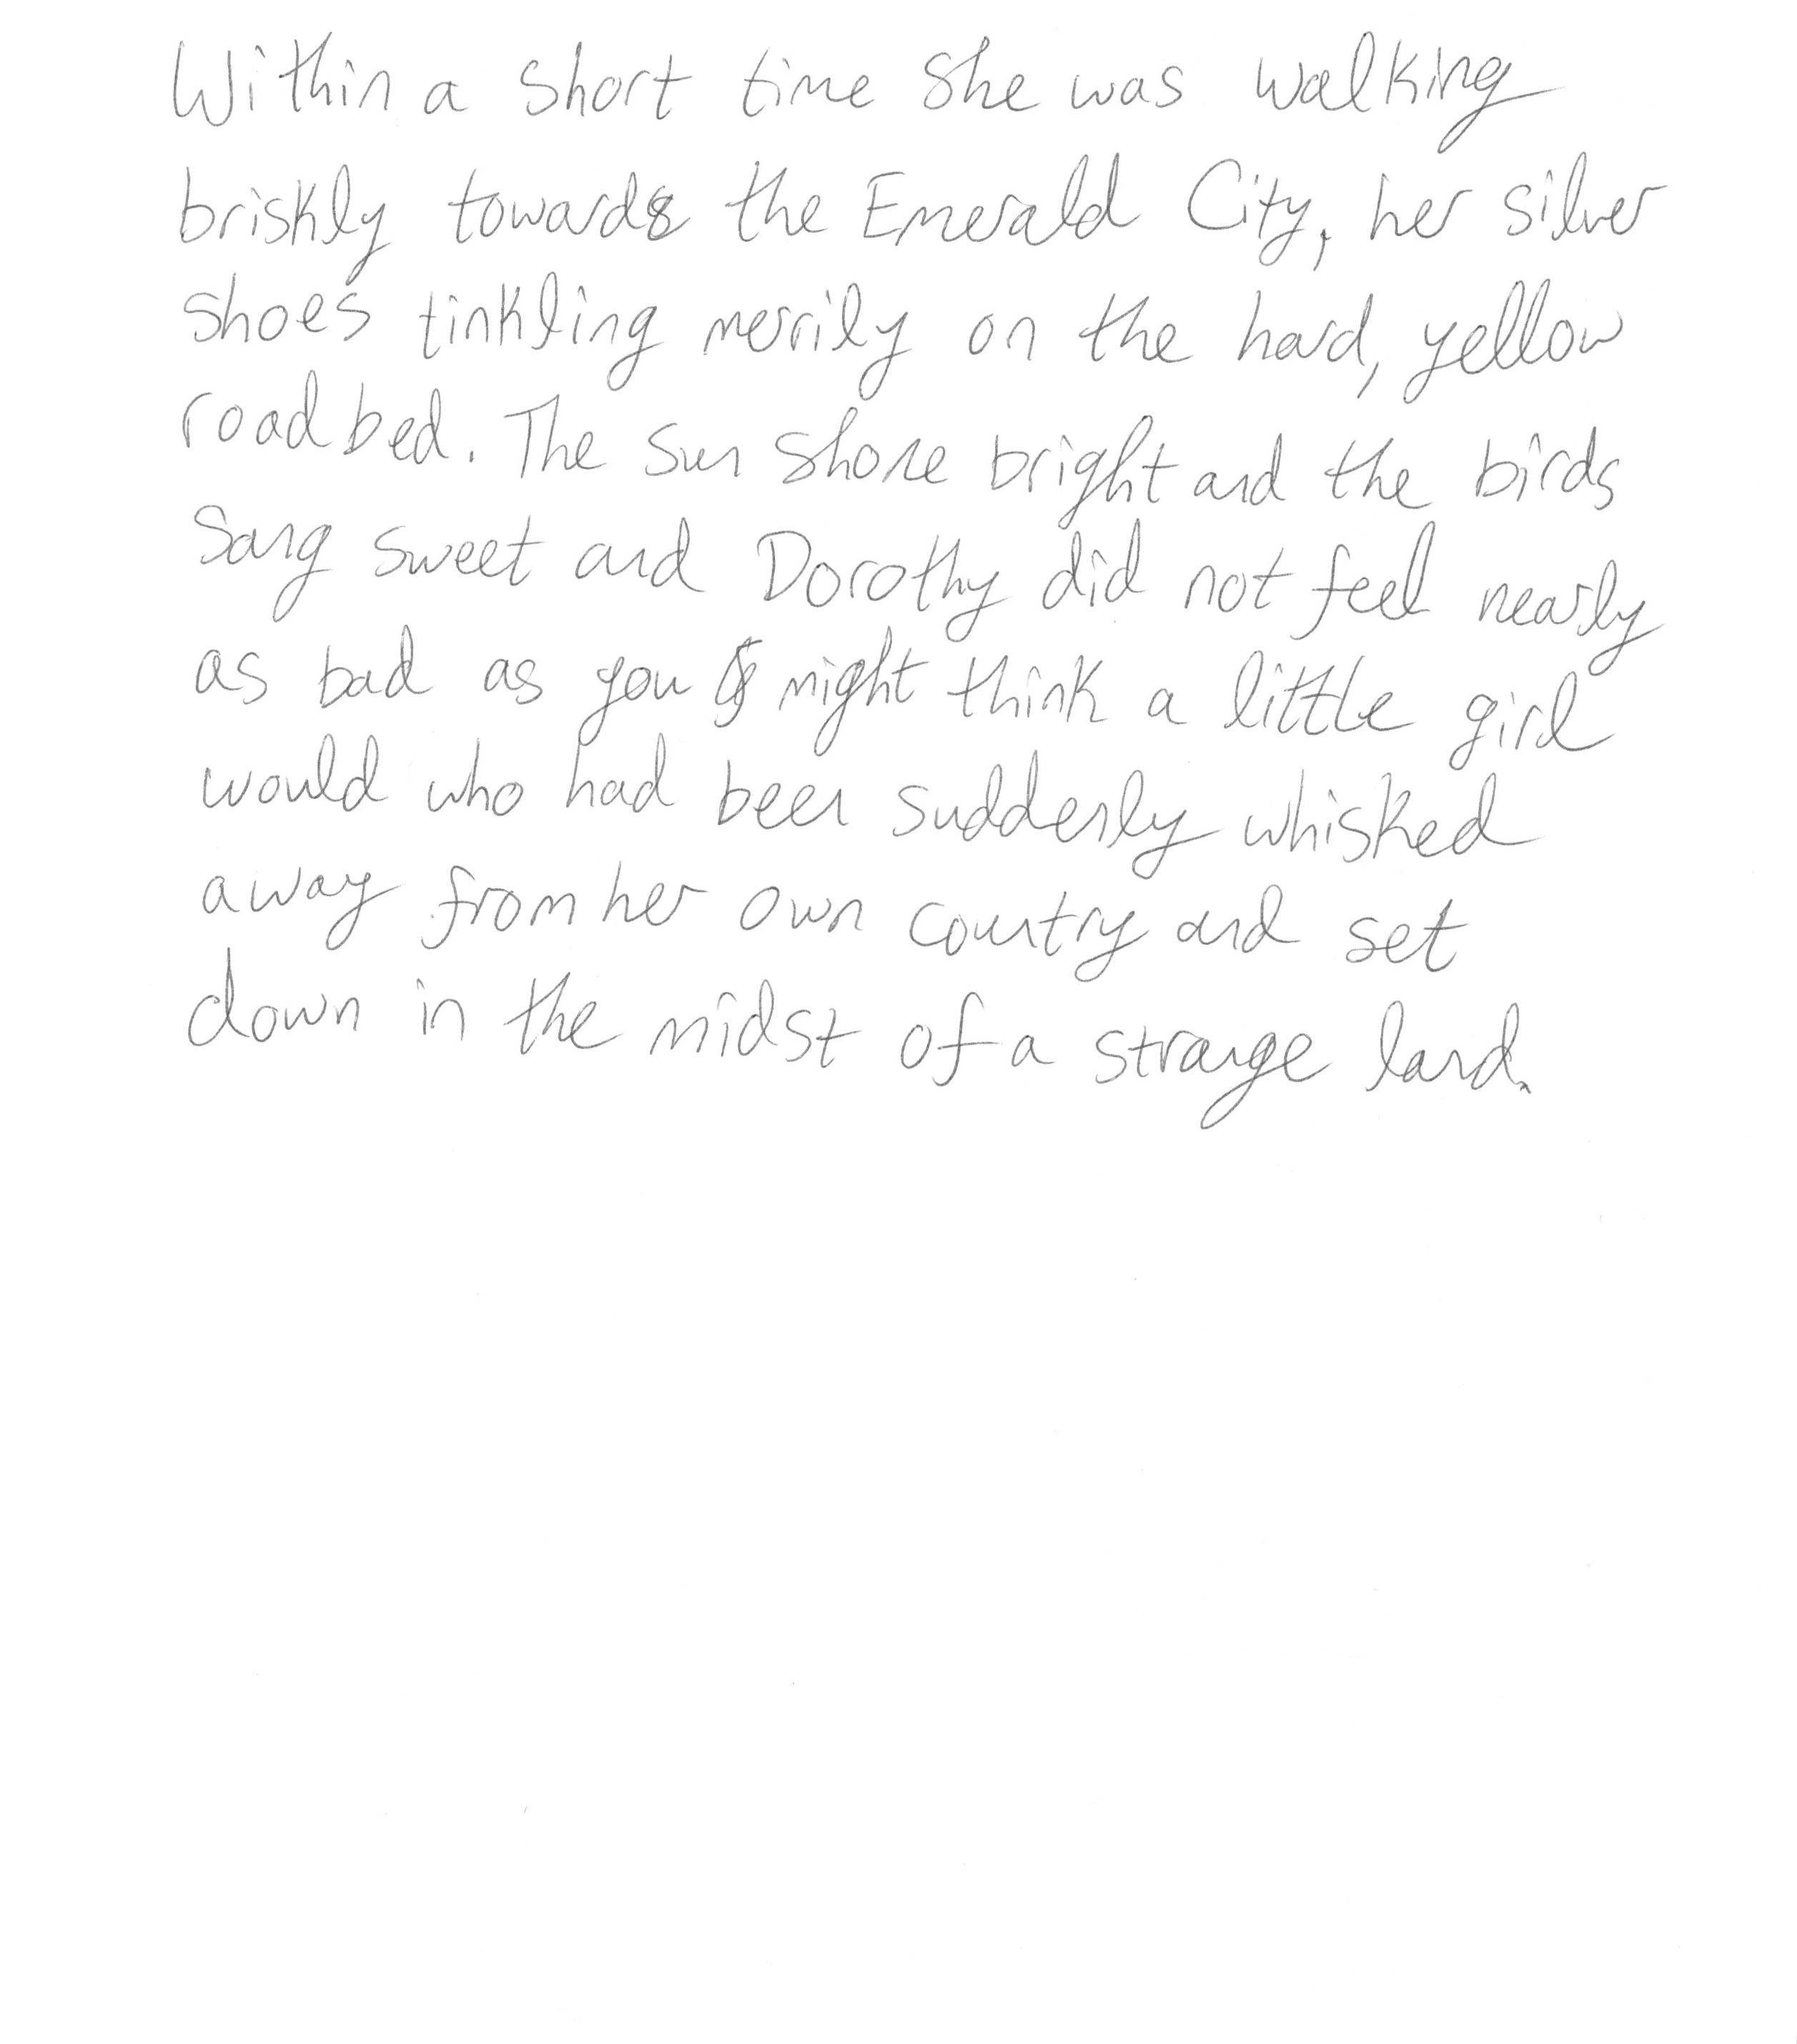 Within a short time she was walking
briskly towards the Emerald City, her silver
shoes tinkling merrily on the hard, yellow
roadbed. The sun shone bright and the birds
sang sweet and Dorothy did not feel nearly
as bad as you might think a little girl
would who had been suddenly whisked
away from her own country and set
down in the midst of a strange land.